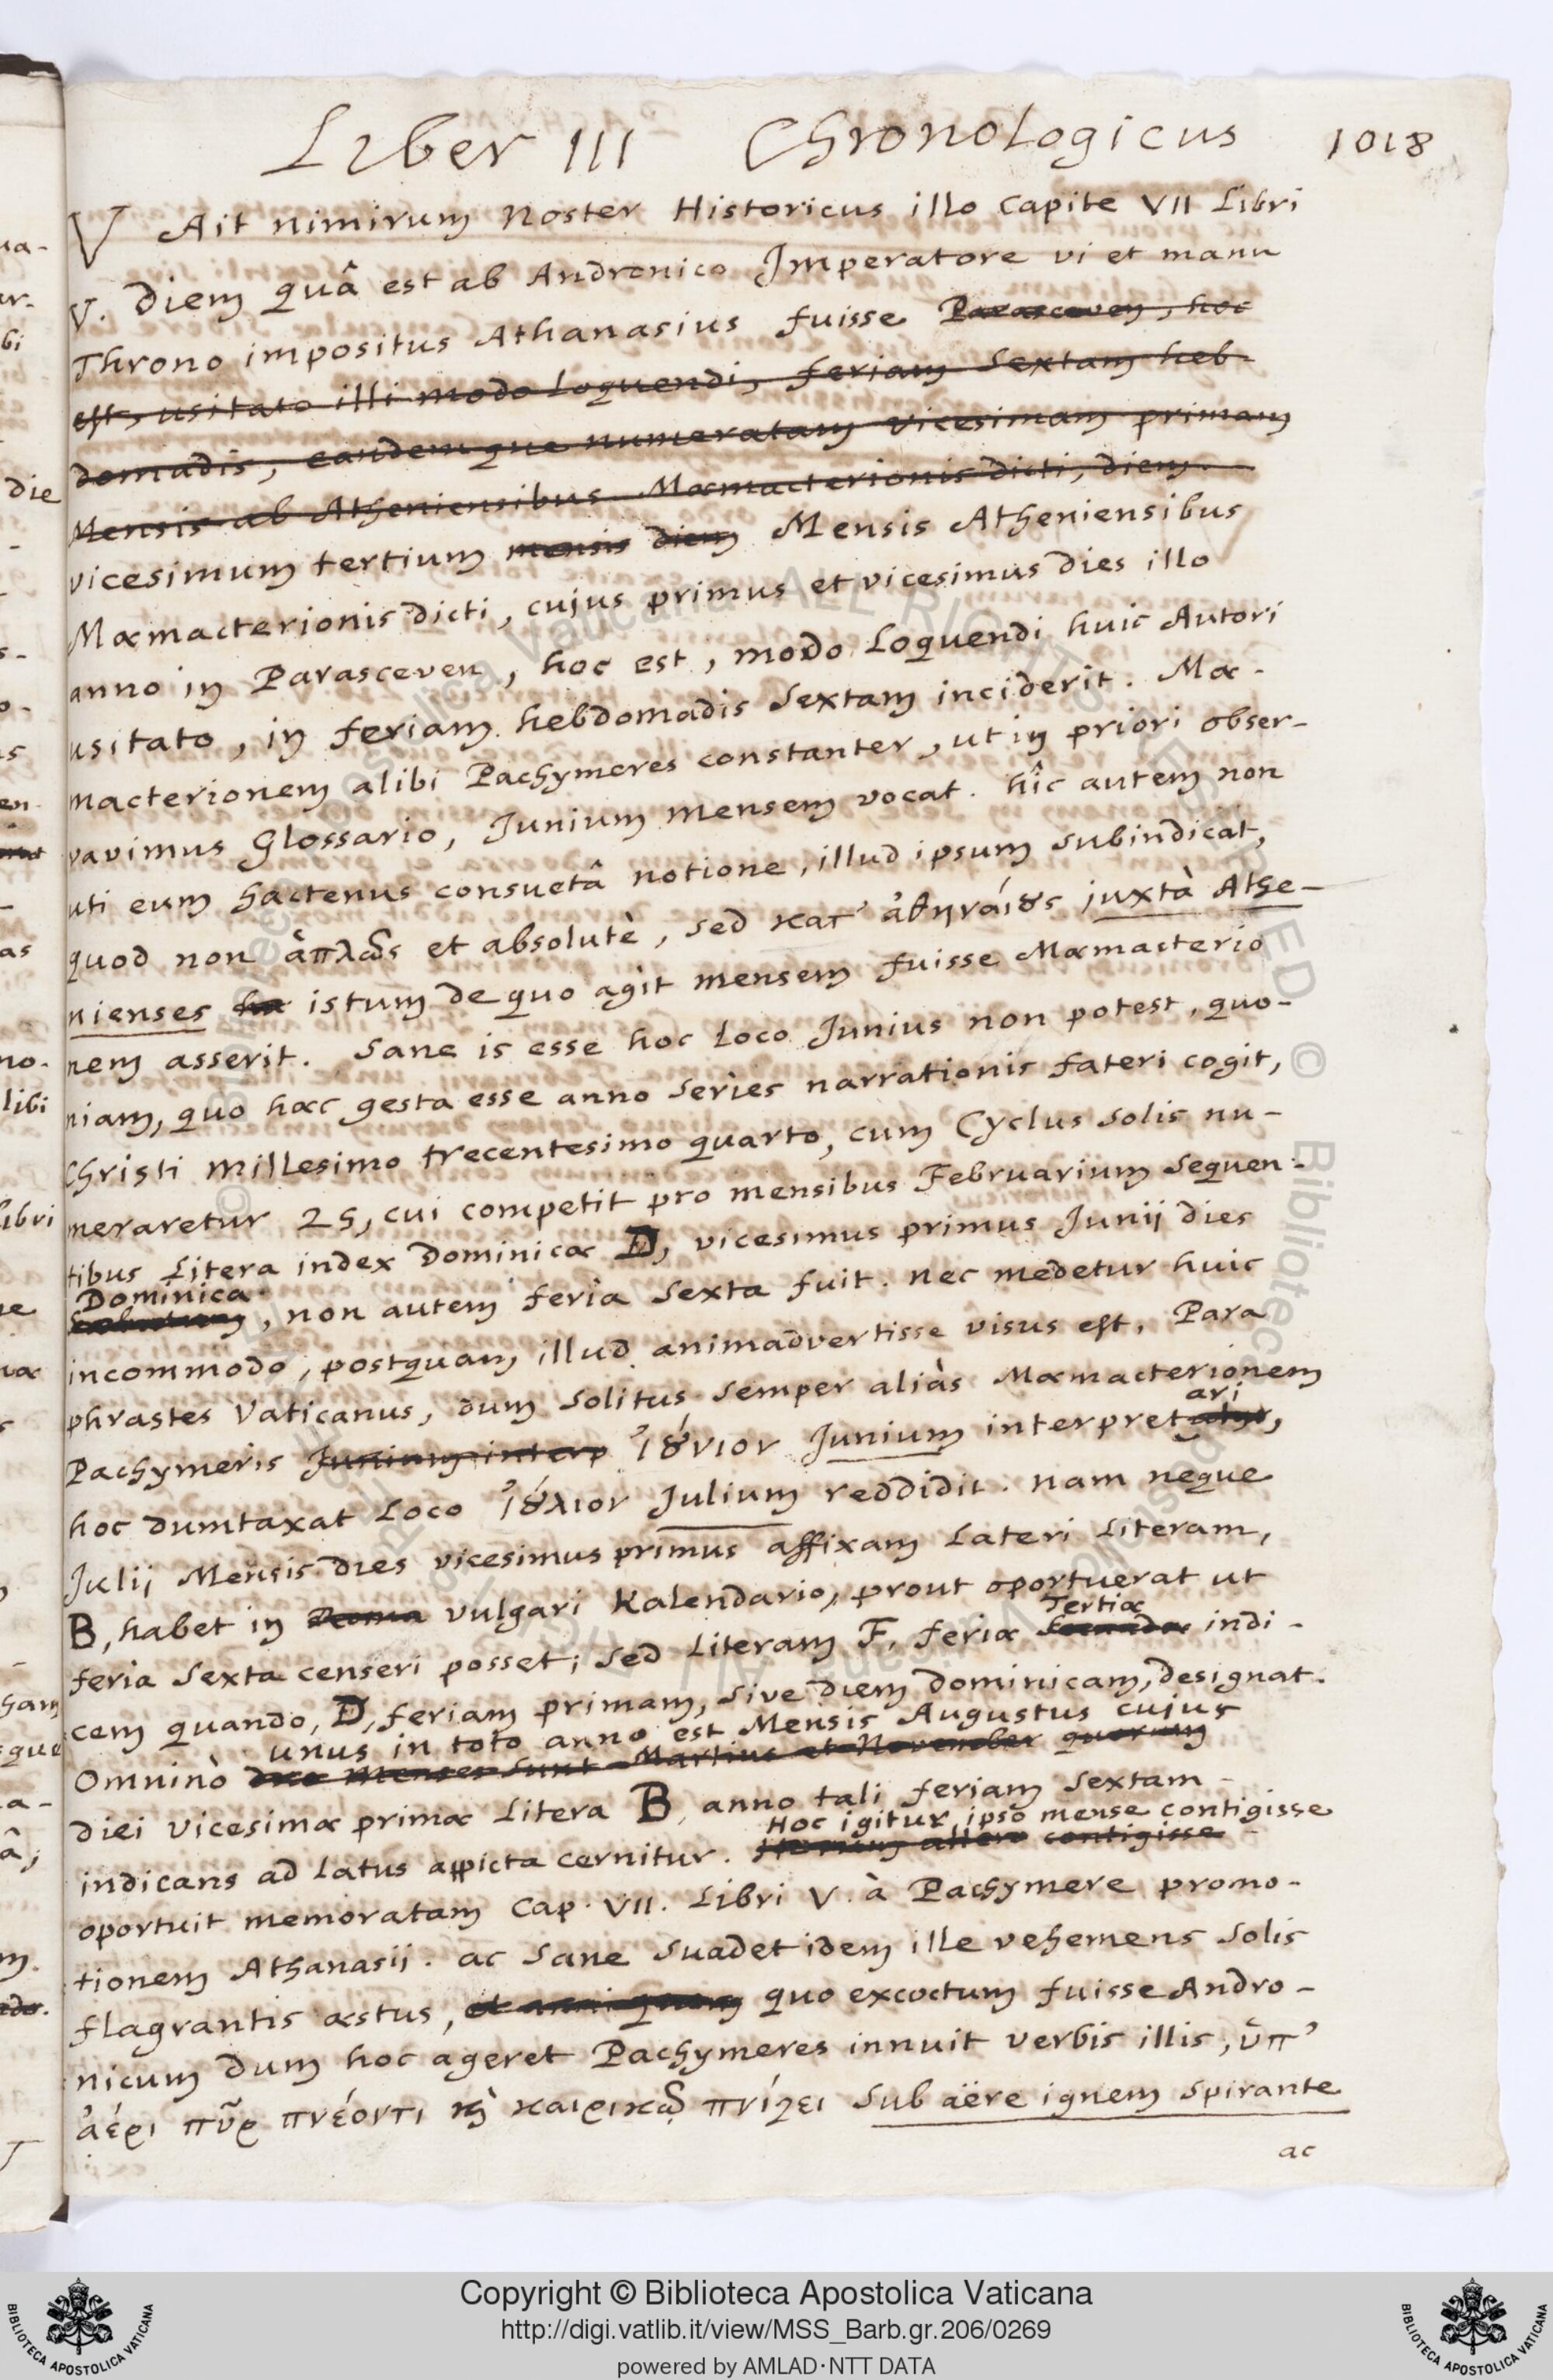 Liber III Chronologicus 1018
V Ait nimirum Noster Historicus illo Capite VII Libri
V. Diem quâ est ab Andronico Imperatore vi et manu
Throno impositus Athanasius fuisse Parasceven, hoc
est, usitato illi modo loquendi, feriam Sextam heb-
domadis, eandemque numeratam vicesimam primam
Mensis ab Atheniensibus Mæmacterionis dicti, diem.
vicesimum tertium mensis diem Mensis Atheniensibus
Mæmacterionis dicti, cujus primus et vicesimus dies illo
anno in Parasceven, hoc est, modo Loquendi huic Autori
usitato, in feriam hebdomadis Sextam inciderit. Mæ-
macterionem alibi Pachymeres constanter, ut in priori obser-
vavimus Glossario, Junium mensem vocat. hîc autem non
uti eum hactenus consuetâ notione, illud ipsum subindicat,
quod non ἁπλῶς et absolutè, sed κατ' ἀθηναίȣς juxtà Athe-
nienses ha istum de quo agit mensem fuisse Mæmacterio
nem asserit. Sane is esse hoc Loco Junius non potest, quo-
niam, quo hæc gesta esse anno Series narrationis fateri cogit,
Christi millesimo trecentesimo quarto, cum Cyclus Solis nu-
meraretur 25, cui competit pro mensibus Februarium Sequen-
tibus Litera index Dominicæ D, vicesimus primus Junij dies
Dominica
, non autem feria Sexta fuit. nec medetur huic
incommodo, postquam illud animadvertisse visus est, Para
phrastes Vaticanus, dum Solitus Semper aliàs Mæmacterionem
ari
Pachymeris Junium interp ἰȣ́νιον Junium interpretatur,
hoc dumtaxat Loco ἰȣ́λιον Julium reddidit. nam neque
Julij Mensis dies vicesimus primus affixam Lateri Literam,
B, habet in Roma vulgari Kalendario, prout oportuerat ut
Tertiæ
feria Sexta censeri posset; Sed Literam F. feriæ Secundæ indi-
cem quando, D, feriam primam, Sive diem dominicam, designat.
unus in toto anno est Mensis Augustus cujus
Omninò duo Menses Sunt Martius et November quorum
diei vicesimæ primæ Litera B, anno tali feriam Sextam
Hoc igitur ipso mense contigisse
indicans ad Latus appicta cernitur. contigisse
oportuit memoratam Cap. VII. Libri V. à Pachymere promo-
tionem Athanasij. ac Sane Suadet idem ille vehemens Solis
flagrantis æstus, quo excoctum fuisse Andro-
nicum dum hoc ageret Pachymeres innuit verbis illis, ὑπ'
ἀέρι πῦρ πνέοντι ϗ̀ καιρικῷ πνίγει Sub aëre ignem Spirante
ac
Copyright © Biblioteca Apostolica Vaticana
http://digi.vatlib.it/view/MSS_Barb.gr.206/0269
powered by AMLAD·NTT DATA
BIBLIOTECA APOSTOLICA VATICANA
BIBLIOTECA APOSTOLICA VATICANA